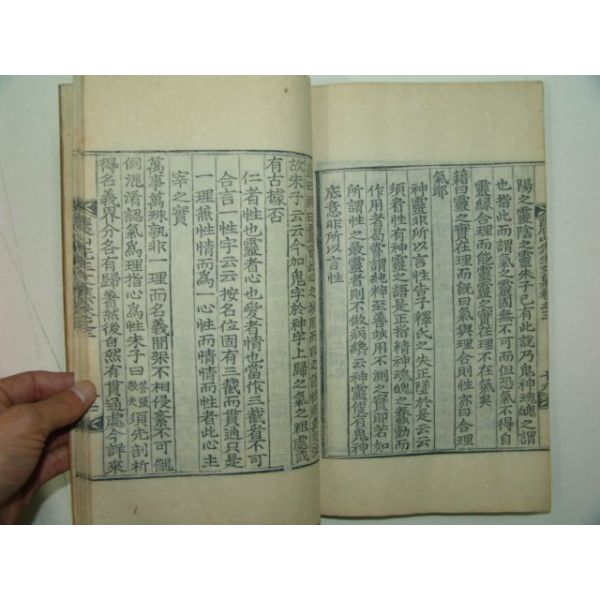 陽之靈陰之靈朱子已有此說乃鬼神魂魄之謂
也指此而謂氣之靈固無不可而但恐氣不得自
靈緣合理而能靈靈之實在理不在氣矣
籍曰靈之實在理而旣曰氣與理合則性亦曰合理
氣耶
神靈非所以言性告子釋氏之失正墜於是云云
須看性有神靈之語是正指精神魂魄之蠢動而
作用者是嘗謂純粹至善用不測之實卽若如
所謂性之最靈者則不做病云神靈惟有鬼神
底意非所以言性
故朱子云云今加鬼字於神字上歸之氣之粗處或
有古據否
仁者性也靈者心也愛者情也當作三截看不可
合言一性字云云按名位固有三截而貫通只是
一理兼性情而爲一心性而情情而性者此心主
宰之實
萬事萬殊孰非一理而名義間架不相侵紊不可儱
侗混淆認氣爲理指心爲性朱子答張敬夫須先剖析
得名義界分各有歸著然後自然有貫通處今詳來